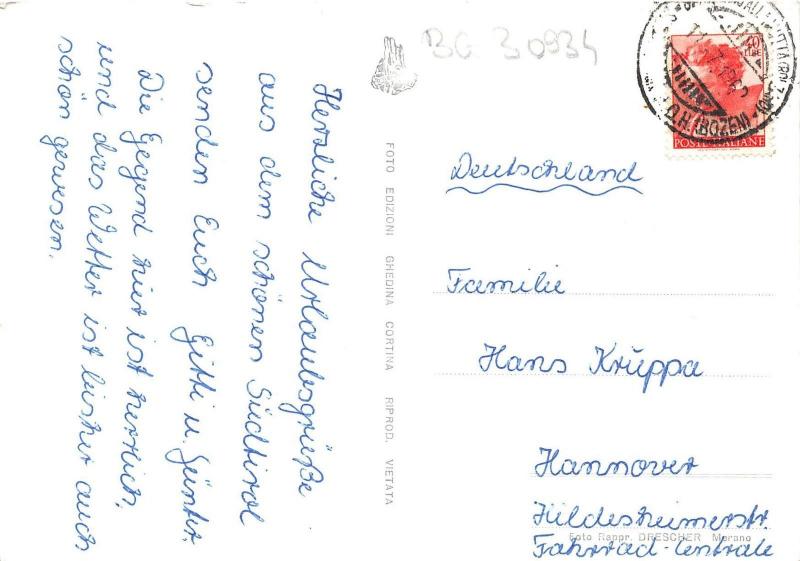 Herzliche Urlaubsgrüße
aus dem schönen Südtirol
senden Euch Gitti u. Günter.
Die Gegend hier ist herrlich,
und das Wetter ist bisher auch
schön gewesen.
FOTO EDIZIONI GHEDINA CORTINA RIPROD. VIETATA
BG 30934
40
LIRE
(BOZEN)
POSTE ITALIANE
Deutschland
Familie
Hans Kruppa
Hannover
Hildesheimerstr.
Foto Rappr. DRESCHER Merano
Fahrrad-Centrale